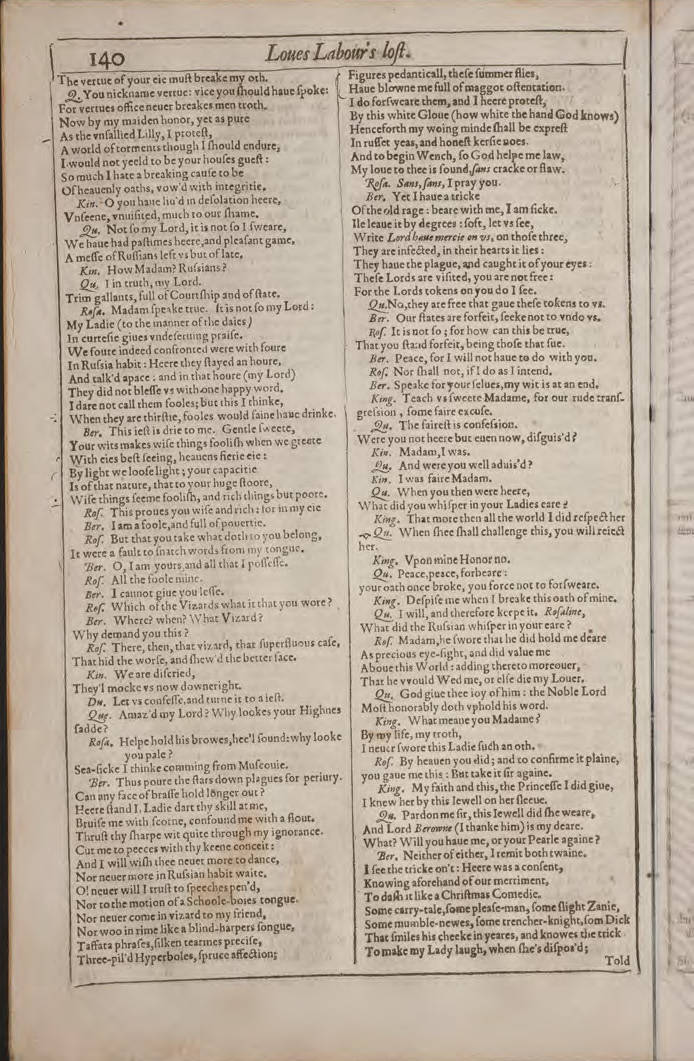 140
Loues Labour's lost.
The vertue of your eie must breake my oth.
Q. You nickname vertue: vice you should haue spoke:
For vertues office neuer breakes men troth.
Now by my maiden honor, yet as pure
As the vnsallied Lilly, I protest,
A world of torments though I should endure,
I would not yeeld to be your houses guest:
So much I hate a breaking cause to be
Of heauenly oaths, vow'd with integritie.
Kin. O you haue liu'd in desolation heere,
Vnseene, vnuisited, much to our shame.
Qu. Not so my Lord, it is not so I sweare,
We haue had pastimes heere, and pleasant game,
A messe of Russians left vs but of late,
Kin. How Madam? Russians?
Qu. I in truth, my Lord.
Trim gallants, full of Courtship and of state.
Rosa. Madam speake true. It is not so my Lord:
My Ladie (to the manner of the daies)
In curtesie giues vndeseruing praise.
We foure indeed confronted were with foure
In Russia habit: Heere they stayed an houre,
And talk'd apace: and in that houre (my Lord)
They did not blesse vs with one happy word.
I dare not call them fooles; but this I thinke,
When they are thirstie, fooles would faine haue drinke.
Ber. This iest is drie to me. Gentle sweete,
Your wits makes wise things foolish when we greete
With eies best seeing, heauens fierie eie:
By light we loose light; your capacitie
Is of that nature, that to your huge stoore,
Wise things seeme foolish, and rich things but poore.
Ros. This proues you wise and rich: for in my eie
Ber. I am a foole, and full of pouertie.
Ros. But that you take what doth to you belong,
It were a fault to snatch words from my tongue.
Ber. O, I am yours, and all that I possesse.
Ros. All the foole mine.
Ber. I cannot giue you lesse.
Ros. Which of the Vizards what it that you wore?
Ber. Where? when? What Vizard?
Why demand you this?
Ros. There, then, that vizard, that superfluous case,
That hid the worse, and shew'd the better face.
Kin. We are discried,
They'l mocke vs now downeright.
Du. Let vs confesse, and turne it to a iest.
Que. Amaz'd my Lord? Why lookes your Highnes
sadde?
Rosa. Helpe hold his browes, hee'l sound: why looke
you pale?
Sea-sicke I thinke comming from Muscouie.
Ber. Thus poure the stars down plagues for periury.
Can any face of brasse hold longer out?
Heere stand I, Ladie dart thy skill at me,
Bruise me with scorne, confound me with a flout.
Thrust thy sharpe wit quite through my ignorance.
Cut me to peeces with thy keene conceit:
And I will wish thee neuer more to dance,
Nor neuer more in Russian habit waite.
O! neuer will I trust to speeches pen'd,
Nor to the motion of a Schoole-boies tongue.
Nor neuer come in vizard to my friend,
Nor woo in rime like a blind-harpers songue,
Taffata phrases, silken tearmes precise,
Three-pil'd Hyperboles, spruce affection;
Figures pedanticall, these summer flies,
Haue blowne me full of maggot ostentation.
I do forsweare them, and I heere protest,
By this white Gloue (how white the hand God knows)
Henceforth my woing minde shall be exprest
In russet yeas, and honest kersie noes.
And to begin Wench, so God helpe me law,
My loue to thee is sound, sans cracke or flaw.
Rosa. Sans, sans, I pray you.
Ber. Yet I haue a tricke
Of the old rage: beare with me, I am sicke.
Ile leaue it by degrees: soft, let vs see,
Write Lord haue mercie on vs, on those three,
They are infected, in their hearts it lies:
They haue the plague, and caught it of your eyes:
These Lords are visited, you are not free:
For the Lords tokens on you do I see.
Qu. No, they are free that gaue these tokens to vs.
Ber. Our states are forfeit, seeke not to vndo vs.
Ros. It is not so; for how can this be true,
That you stand forfeit, being those that sue.
Ber. Peace, for I will not haue to do with you.
Ros. Nor shall not, if I do as I intend.
Ber. Speake for your selues, my wit is at an end.
King. Teach vs sweete Madame, for our rude trans-
gression, some faire excuse.
Qu. The fairest is confession.
Were you not heere but euen now, disguis'd?
Kin. Madam, I was.
Qu. And were you well aduis'd?
Kin. I was faire Madam.
Qu. When you then were heere,
What did you whisper in your Ladies eare?
King. That more then all the world I did respect her
Qu. When shee shall challenge this, you will reiect
her.
King. Vpon mine Honor no.
Qu. Peace, peace, forbeare:
your oath once broke, you force not to forsweare.
King. Despise me when I breake this oath of mine.
Qu. I will, and therefore keepe it. Rosaline,
What did the Russian whisper in your eare?
Ros. Madam, he swore that he did hold me deare
As precious eye-sight, and did value me
Aboue this World: adding thereto moreouer,
That he vvould Wed me, or else die my Louer.
Qu. God giue thee ioy of him: the Noble Lord
Most honorably doth vphold his word.
King. What meane you Madame?
By my life, my troth,
I neuer swore this Ladie such an oth.
Ros. By heauen you did; and to confirme it plaine,
you gaue me this: But take it sir againe.
King. My faith and this, the Princesse I did giue,
I knew her by this Iewell on her sleeue.
Qu. Pardon me sir, this Iewell did she weare,
And Lord Berowne (I thanke him) is my deare.
What? Will you haue me, or your Pearle againe?
Ber. Neither of either, I remit both twaine.
I see the tricke on't: Heere was a consent,
Knowing aforehand of our merriment,
To dash it like a Christmas Comedie.
Some carry-tale, some please-man, some slight Zanie,
Some mumble-newes, some trencher-knight, som Dick
That smiles his cheeke in yeares, and knowes the trick
To make my Lady laugh, when she's dispos'd;
Told